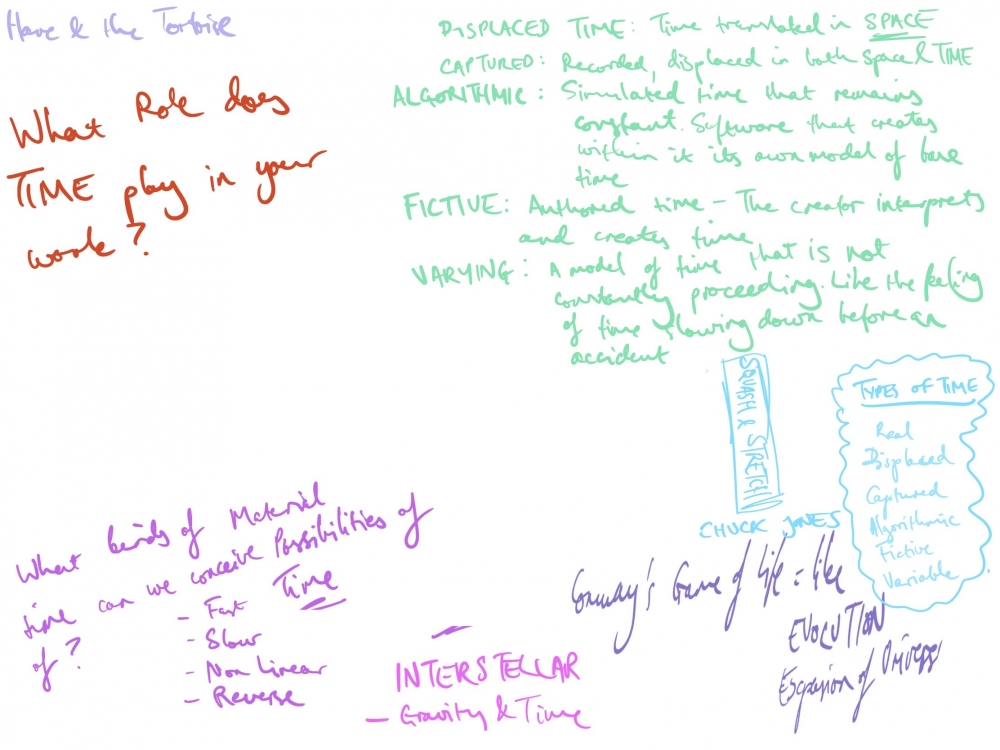 Hare & the Tortoise
What Role does
TIME play in your
work?
DISPLACED TIME: Time translated in SPACE
CAPTURED: Recorded, displaced in both space & TIME
ALGORITHMIC: Simulated time that remains
constant. Software that creates
within it its own model of base
time
FICTIVE: Authored time – The creator interprets
and creates time
VARYING: A model of time that is not
constantly proceeding. Like the feeling
of time slowing down before an
accident
SQUASH & STRETCH
CHUCK JONES
TYPES OF TIME
Real
Displaced
Captured
Algorithmic
Fictive
Variable
Conway's Game of Life = like
EVOLUTION
Expansion of Universe
What kinds of Material
time can we conceive
of?
Possibilities of
Time
- Fast
- Slow
- Non Linear
- Reverse
INTERSTELLAR
- Gravity & Time